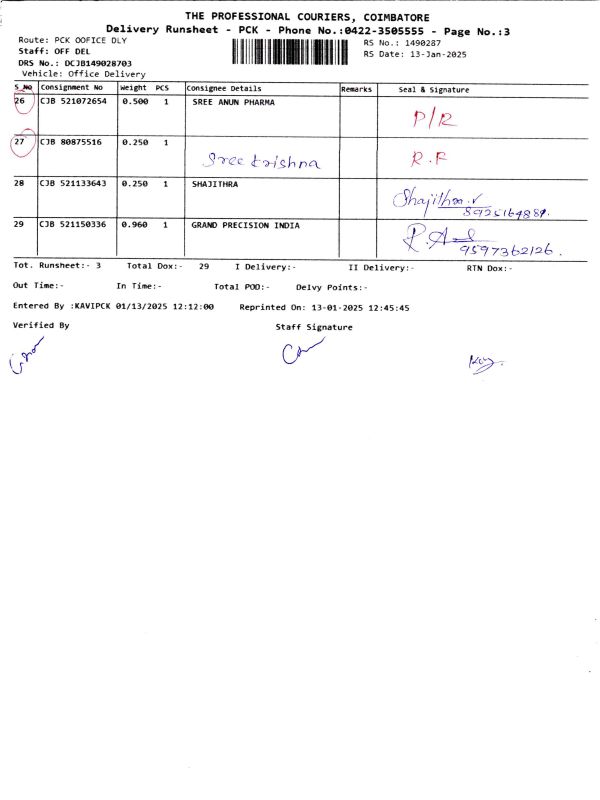 THE PROFESSIONAL COURIERS, COIMBATORE
Delivery Runsheet - PCK - Phone No.:0422-3505555 - Page No.:3
Route: PCK OOFICE DLY
RS No.: 1490287
Staff: OFF DEL
RS Date: 13-Jan-2025
DRS No.: DCJB149028703
Vehicle: Office Delivery
S_No Consignment No Weight PCS Consignee Details Remarks Seal & Signature
26 CJB 521072654 0.500 1 SREE ANUN PHARMA P/R
27 CJB 80875516 0.250 1 Sree krishna R.F
28 CJB 521133643 0.250 1 SHAJITHRA Shajithra.V
29 CJB 521150336 0.960 1 GRAND PRECISION INDIA
9597362126.
Tot. Runsheet:- 3 Total Dox:- 29 I Delivery:- II Delivery:- RTN Dox:-
Out Time:- In Time:- Total POD:- Delvy Points:-
Entered By :KAVIPCK 01/13/2025 12:12:00 Reprinted On: 13-01-2025 12:45:45
Verified By Staff Signature